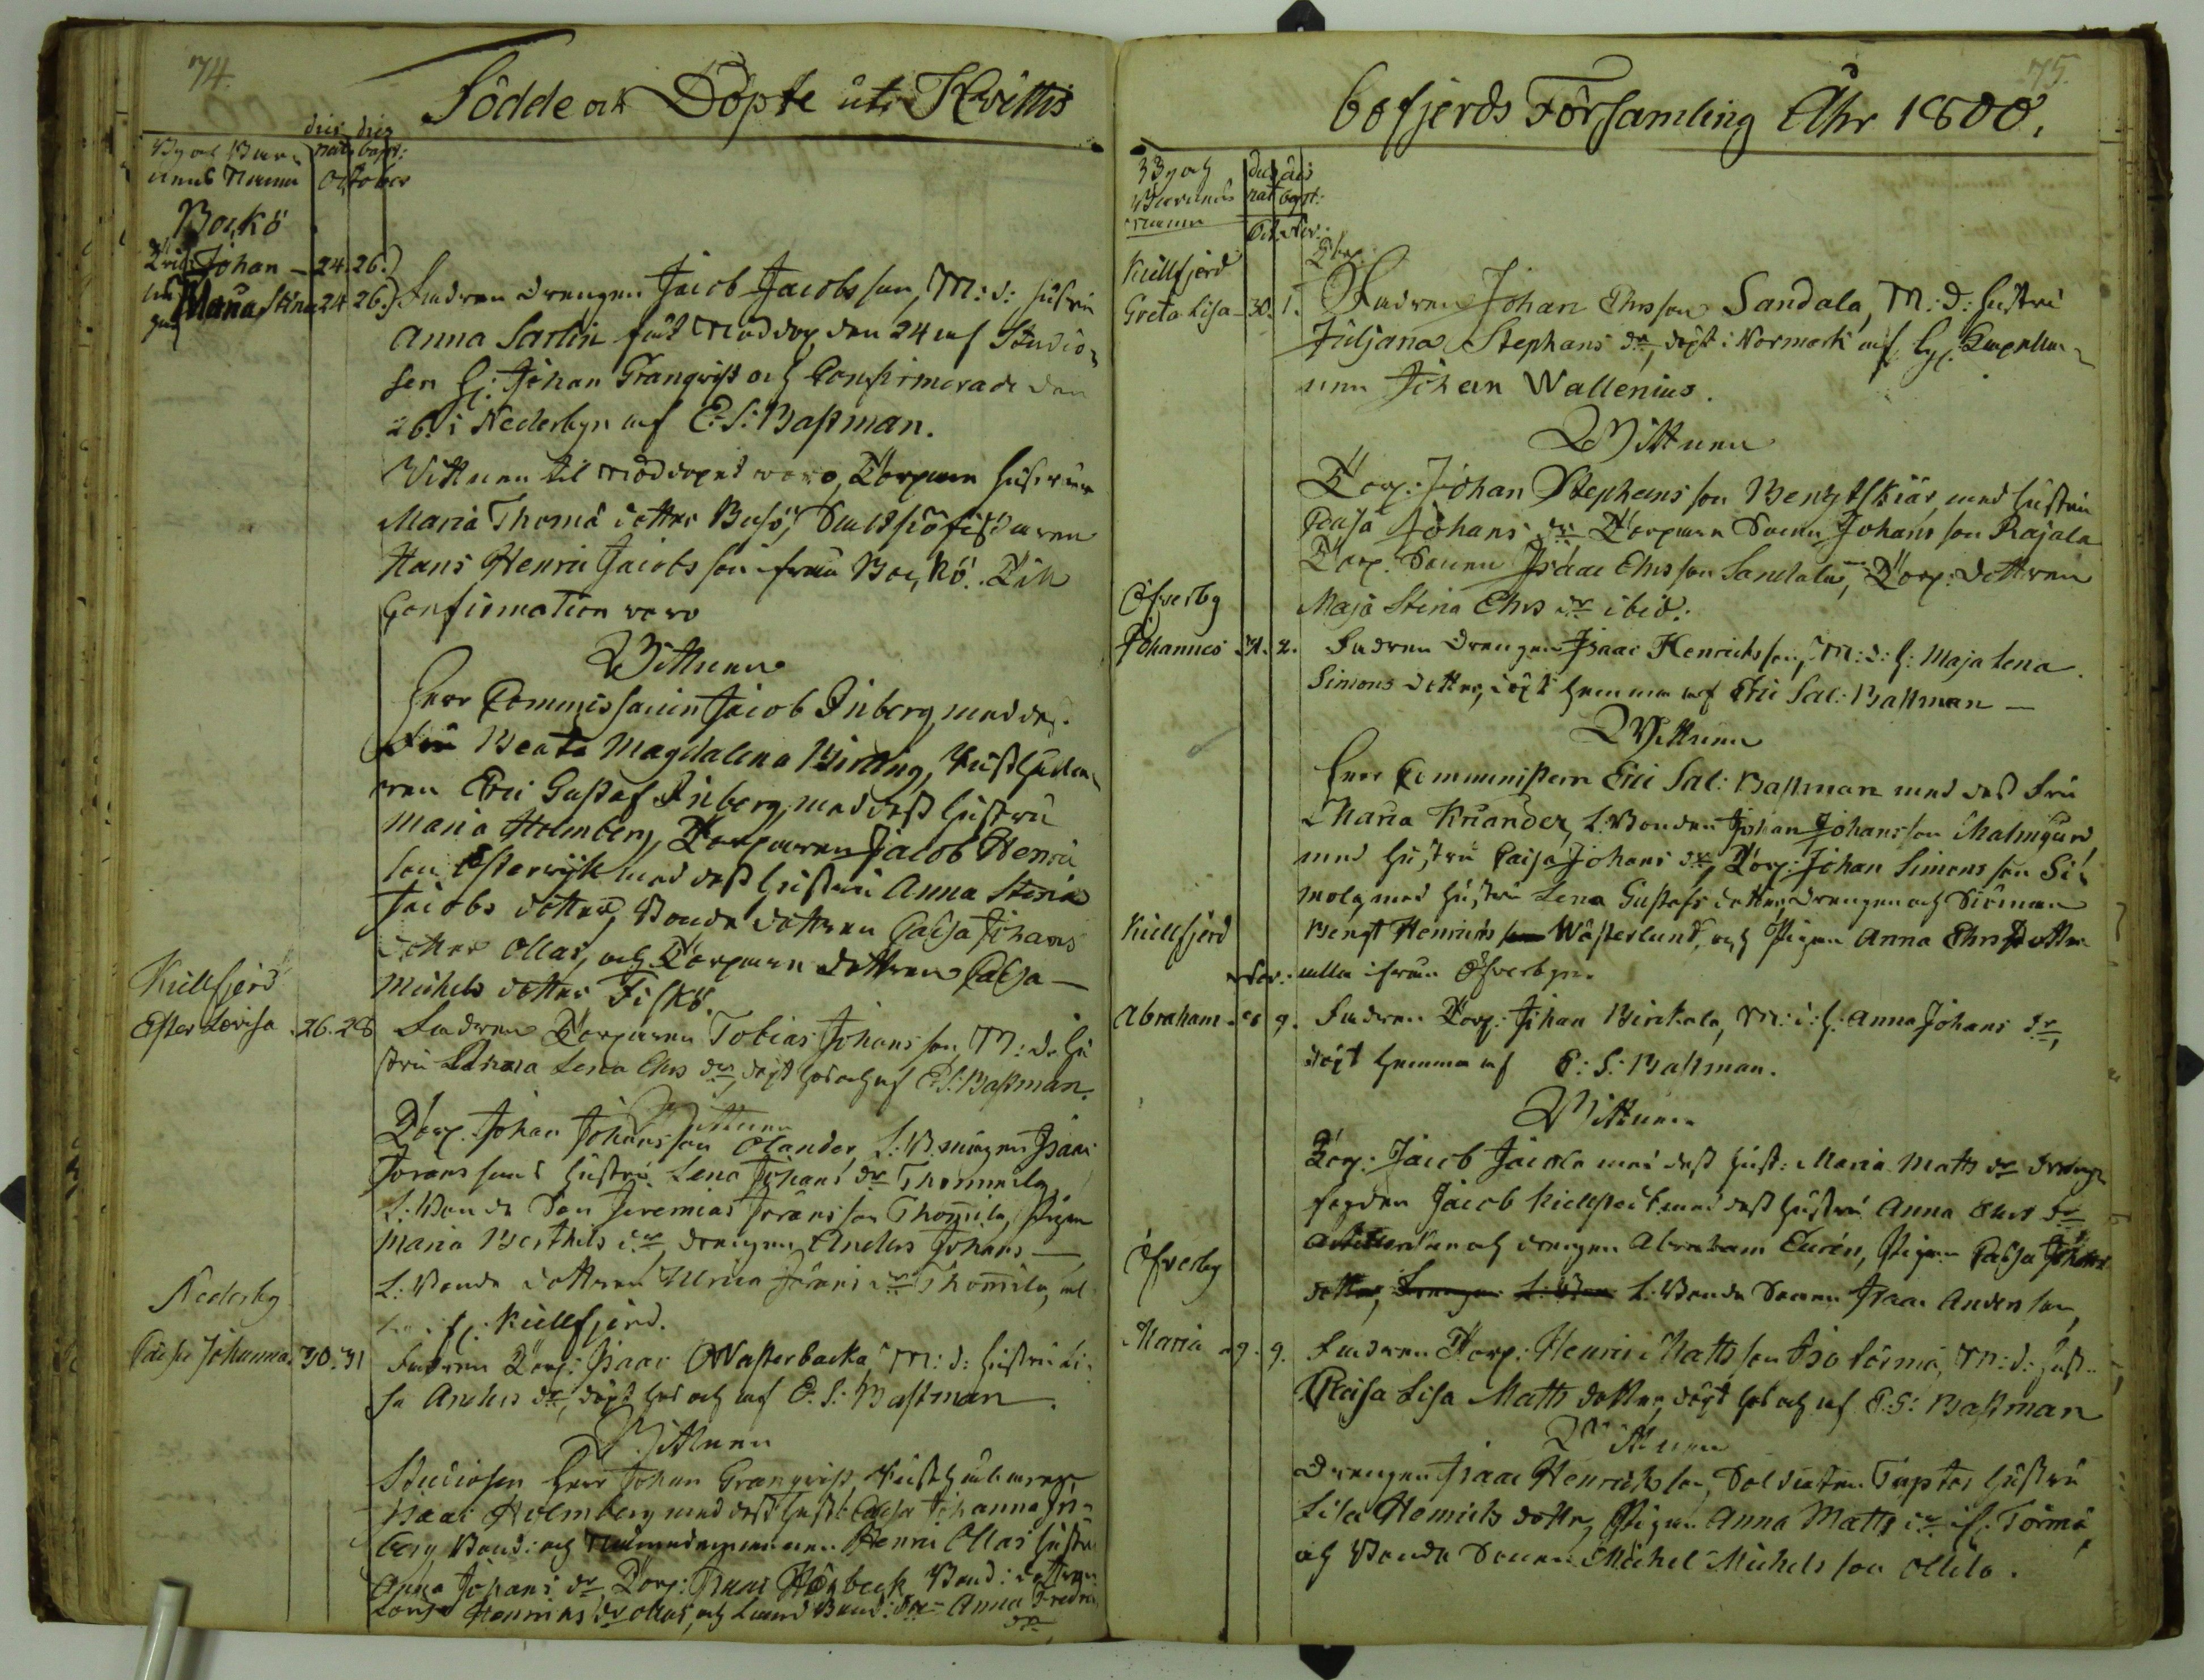 74.
Födde och Döpte uti Kvittis
dies dies
By och Bar- nat: bapt:
nens Namn October
Bockö
Johan – 24. 26.
Maria Stina 24 26.) Fadren Drengen Jacob Jacobsson, M: d: hustru
Anna Sarlin fådt Nöddop den 24 af Studio-
sen H: Johan Granqvist och Confirmerade den
26. i Nederbyn af E: S: Bastman.
Vittnen til Nöddopet woro, Torpare hustrun
Maria Thomä dotter Busö,
Hans Henric Jacobs son ifrån Bockö. Till
Confirmation voro
Vittnen
Herr Commissarien Jacob Inberg, med dess
Fru Beata Magdalena Kirling, Rusthålla-
ren Eric Gustaf Inberg, med dess hustru
Maria Holmberg, Torparen Jacob Henric
son Österwijk med dess hustru Anna Stina
Jacobs dotter, Bonde dottren Caisa Johans
dotter Ollas, och Torpare dottren Caisa
Michels dotter Fiskö.
Kiellfjerd
Ester Lovisa 26. 28 Fadren Torparen Tobias Johans son, M: d: Hu
stru Lena Ehrs dr, döpt hos och af E: S: Bastman.
Vittnen
Torp. Johan Johans son Olander, L: B. Isaac
Jörans sons hustru Lena Johans dr Thommila,
L: Bonde Son Jeremias Jörans son Thommila, Pigan
Maria Berthels dr, drengen Anders Johans
L: Bonde dottren Ulrica Jörans dr Thommila, al
Kiellfjerd.
Nederby
Caisa Johanna 30. 31 Fadren Torp: Isaac Wästerbacka, M: d: hustru Li-
sa Anders dr, döpt hos och af E: S: Bastman.
Vittnen
Studiosen Herr Johan Granqvist, Rusthållaren
Isaac Holmberg med dess hust: Caisa Johanna In-
berg, Bond: och Nämndemannen Henric Ollas hustru
Anna Johans dr Torp: Isaac Högback, Bond: dottren
Lovisa Henrichs dr Ollas, och Bond: dr Anna Fredrics
dr
75.
böfjerds Församling Åhr 1800.
By och dies dies
Barnens nat bapt:
Namn Oct. Nov:
Kiellfjerd
Greta Lisa – 30. 1. Fadren Johan Ehrsson Sandala, M: d: hustru
Juliana Stephans dr, döpt i Normark af H: Capella-
nen Johan Wallenius.
Vittnen
Torp: Johan Stephans son Bengtskiär, med hustru
Caisa Johans dr Torpare Sonen Johans son Rajala
Torp. Sonen Isaac Ehrsson Sandala, Torp: dottren
Maja Stina Ehrs dr ibid:
Öfverby
Johannes 31. 2. Fadren drengen Isaac Henrichsson, M: d: h: Maja Lena
Simons dotter, döpt hemma af Eric Sal: Bastman
Vittnen
Herr Comministern Eric Sal: Bastman med dess Fru
Maria Kriander, L: Bonden Johan Johansson Malmgård
med hustru Caisa Johans dr, Torp: Johan Simons son Si-
mola, med hustru Lena Gustafs dotter, drengen och Siöman
Bengt Henrichs son Wästerlund, och Pigan Anna Ehrs dotter
alla ifrån Öfverbyn.
Kiellfjerd
Nov:
Abraham 8 9. Fadren Torp: Johan Birkala, M: d: h: Anna Johans dr,
döpt hemma af E: S: Bastman.
Vittnen
Torp: Jacob Jacola med dess hust: Maria Matts dr
fogden Jacob Kiellstedt med dess hustru Anna Ehrs dr
och drengen Abraham Eurén, Pigan Caisa Johans
dotter, L: Bonde Sonen Isaac Anders son,
Öfverby
Maria 9. 9. Fadren Torp: Henric Matts son Iso Törmä, M: d: hust.
Caisa Lisa Matts dotter, döpt hos och af E: S: Bastman
Vittnen
Drengen Isaac Henrichsson, Soldaten Tapters hustru
Lisa Henrichs dotter, Pigan Anna Matts dr if: Törmä,
och Bonde Sonen Michel Michels son Ollila.